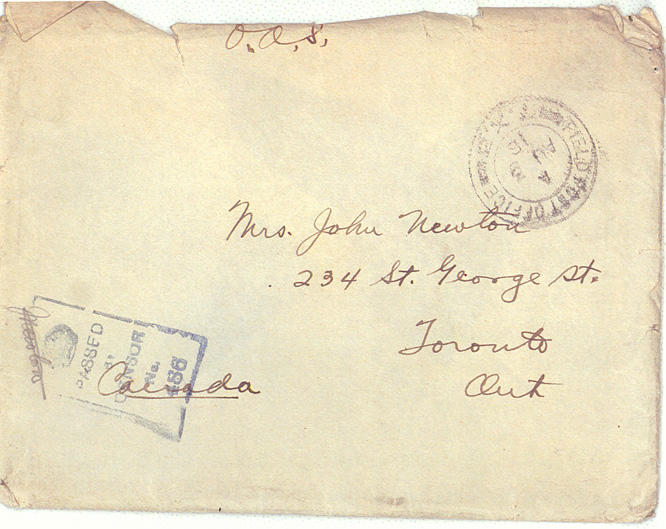 O.A.S.
FIELD POST OFFICE
Mrs. John Newton
234 St. George St.
Toronto
Ont
Canada
PASSED
BY
CENSOR
No.